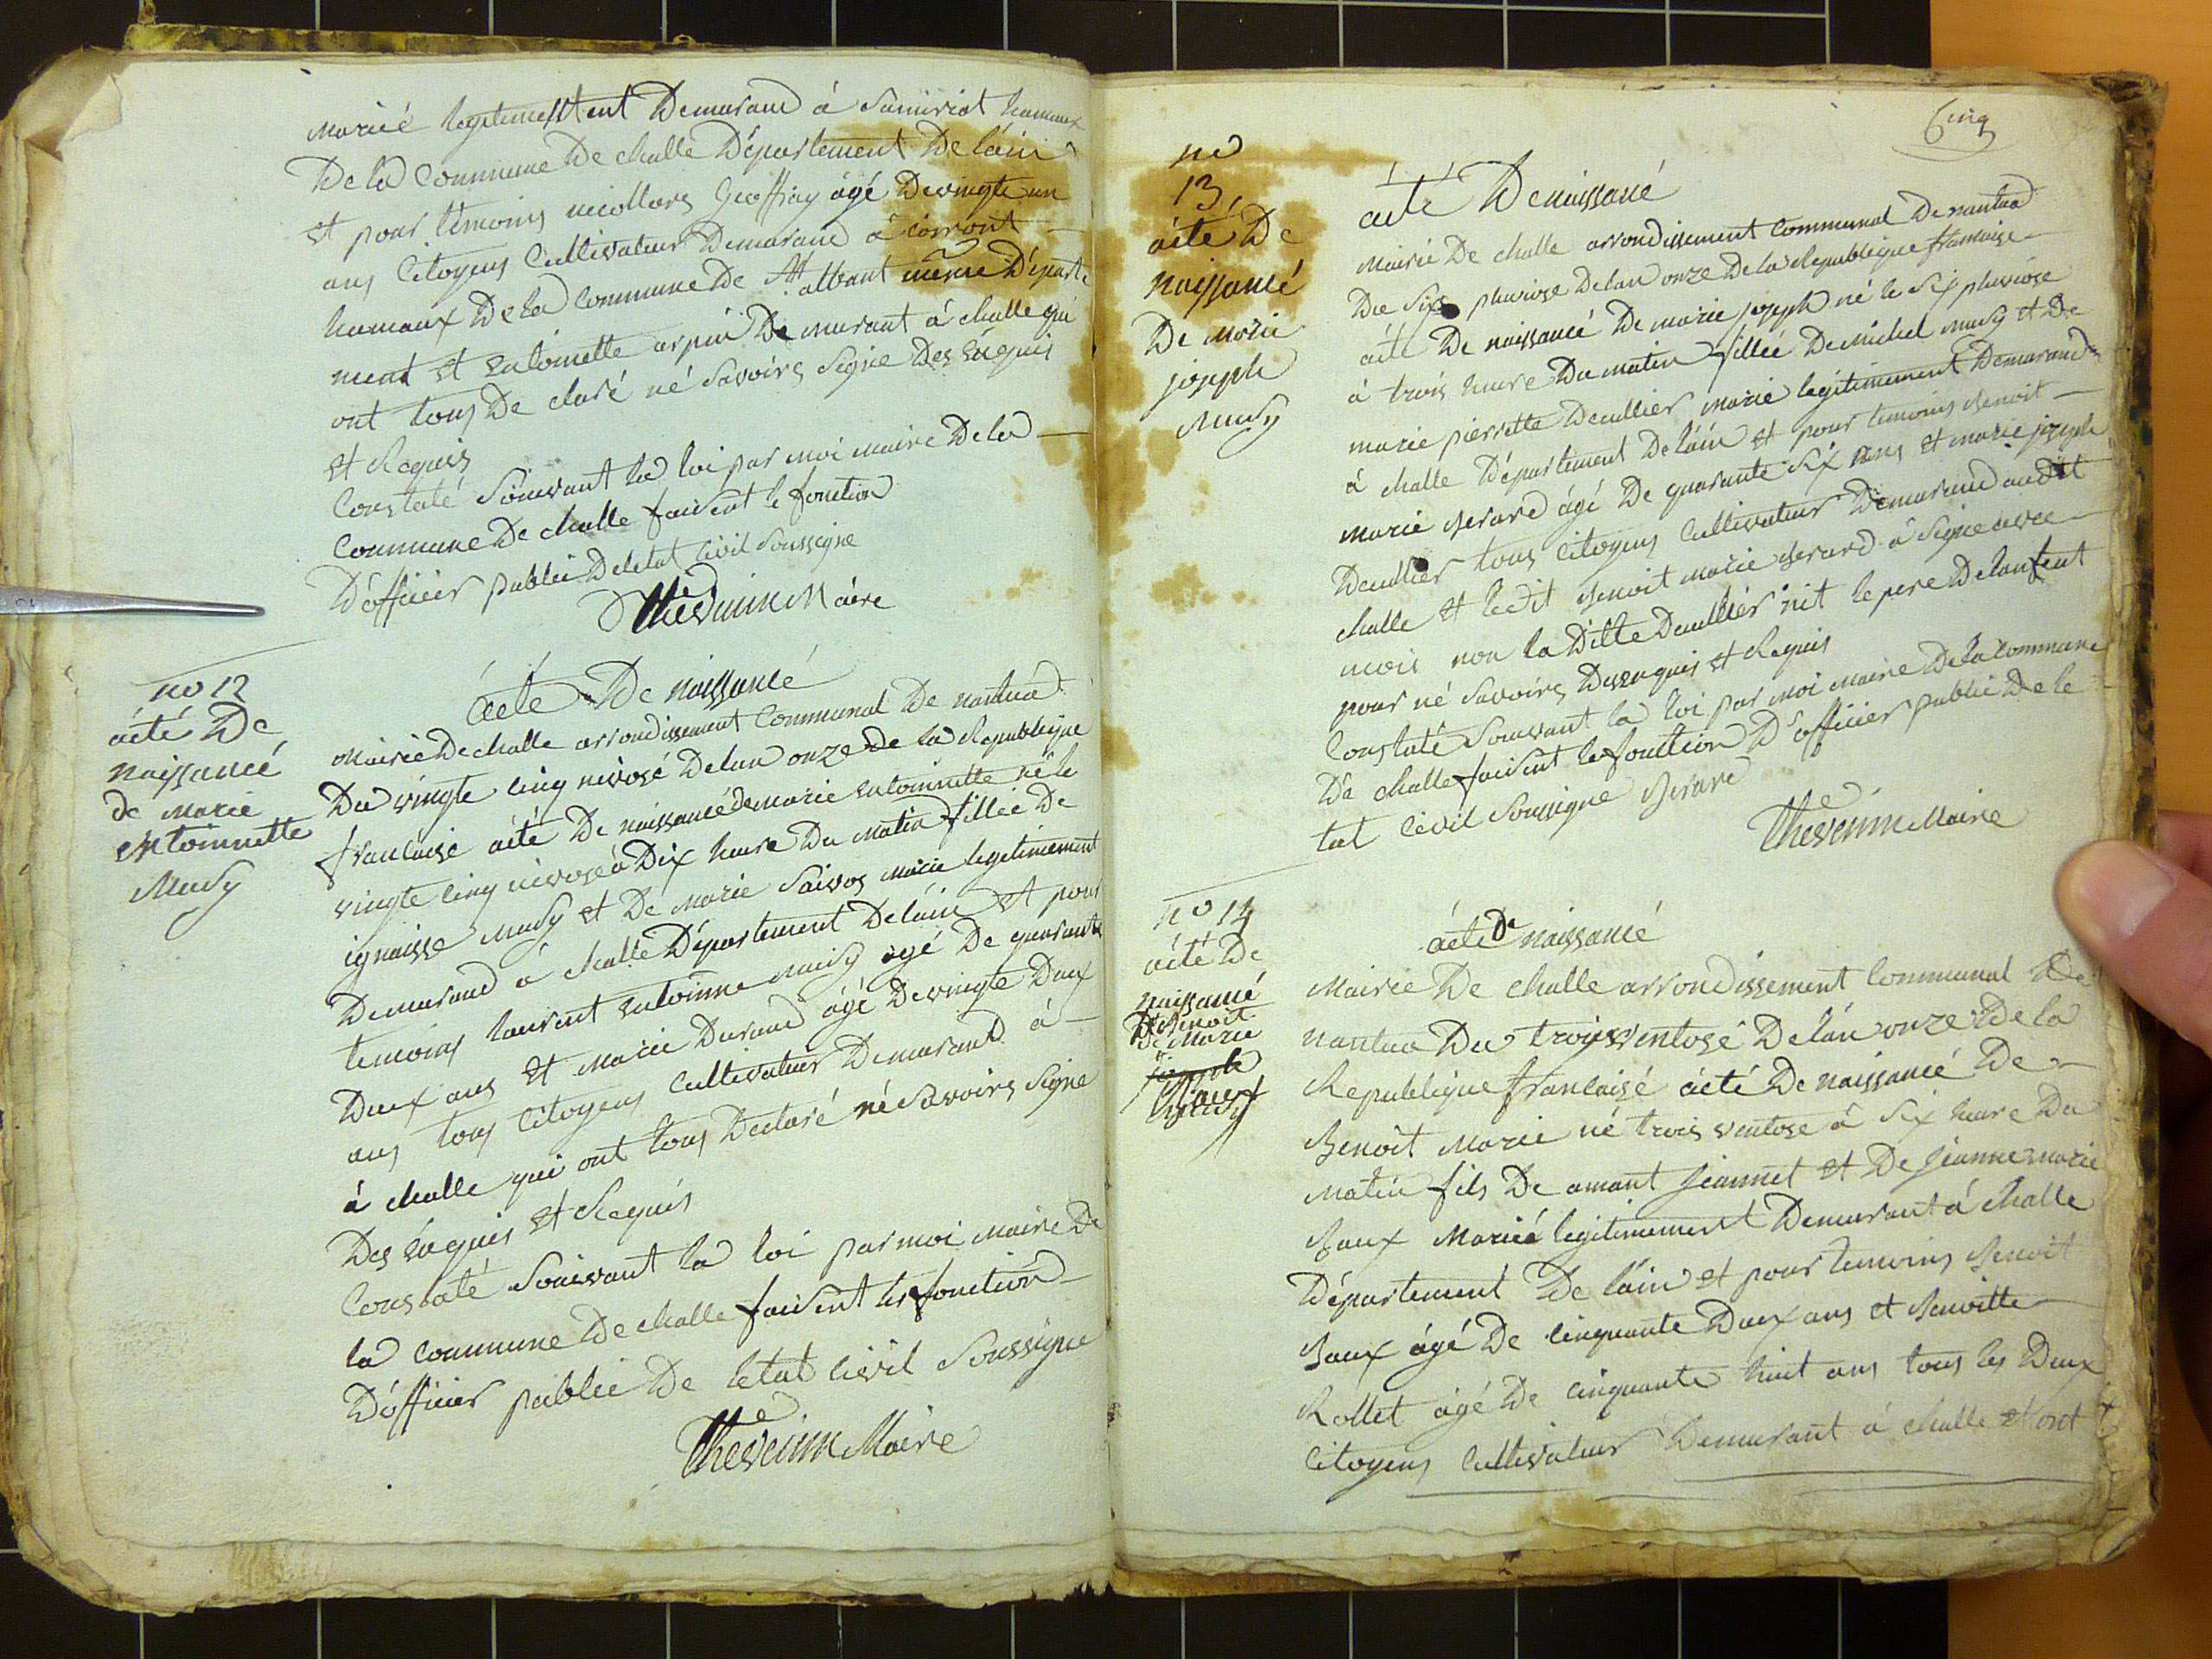 Marié legitimement Demurand á Samiriat hamaux
De la Commune De challe Département De láin
et pour témoins nicollars Geoffray agé De vingte un
ans Citoyens Cultivateur Demurand á Coiront
hamaux De la Commune De St albant même Départe
ment et entoinette arpin De murant á challe qui
ont tous De claré né Savoirs Signe Des Enquis
et Requis
Constaté Souivant la loi par moi maire De la
Commune De challe faisent le fonction
D'officier public De letat Civil Soussigne
Thévenin Maire
no 12
acté De
naissancé
de Marie
entoinnette
Mudy
Acté De naissancé
Mairie De challe arrondissement Communal De nantua
Du vingte cinq nivosé De lan onze De la Republique
francaise acté De naissancé de marie entoinnette né le
vingte cinq nivose á Dix heure Du Matin filleé De
ignaisse Mudy et De Marie Saivos marie legitimement
Demurand á challe Département De láin et pour
temoins laurent entoinne Mudy agé De quarante
Deux ans et Marie Durand ágé De vingte Deux
ans tous Citoyens Cultivateur Demurand á
á challe qui ont tous Declaré né Savoirs Signe
Des Enquis et Requis
Constaté Souivant la loi par moi Maire De
la Commune De challe faisent les fonction
D'officier public De letat Civil Soussigne
Thévenin Maire
Cinq
no
13,
acté De
naissancé
De Marie
joseph
Mudy
acté De naissancé
Mairie De challe arrondissement Communal De nantua
Du Six pluviose De lan onze De la Republique francaise
acté De naissancé De marie joseph né le Six pluviose
á trois heure Du matin filleé De Michel Mudy et De
marie pierrette Deullier Marie legitimement Demurand
á challe Département De láin et pour temoins Benoit
Marie Berard ágé De quarante Six ans et marie joseph
Deullier tous Citoyens Cultivateur Demurand audit
challe et ledit Benoit Marie Berard á Signe avec
mois non la Ditte Deullier nit le pere De lanfent
pour né Savoirs Des enquis et Requis
Constaté Souivant la loi par moi Maire De la Commune
De challe faisent le fonction D'officier public De le
tat Civil Soussigne Berard
Thévenin Maire
no 14
acté De
naissancé
De Benoit
De Marie
acté De naissancé
Mairie De challe arrondissement Communal De
nantua Du trois ventosé De lán onze De la
Republique francaisé acté De naissancé De
Benoît Marie né trois ventose á Six heure Du
Matin fils De amant Jeannet et De Jeanne Marie
Baux Marié legitimement Demurant á challe
Département De láin et pour temoins Benoit
Baux ágé De cinquante Deux ans et Benoitte
Rollet ágé De cinquante huit ans tous les Deux
Citoyens Cultivateur Demurant á challe et ont